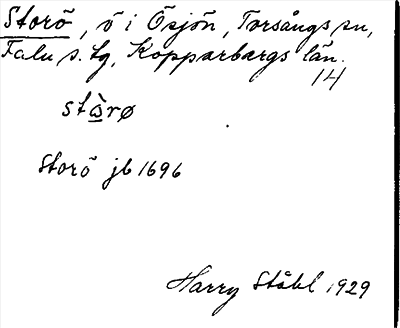 Storö, ö i Ösjön, Torsångs sn,
Falu s. tg, Kopparbergs län.
14
stɷ̀rø
Storö jb 1696
Harry Ståhl 1929